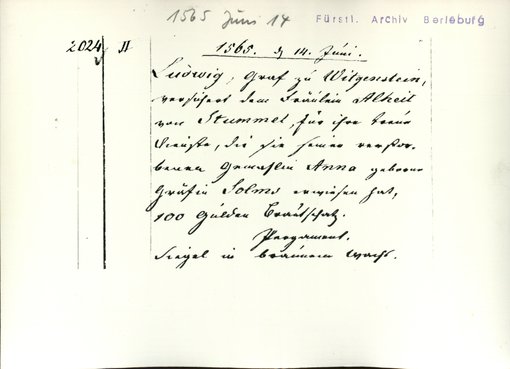 1565 Juni 14
Fürstl. Archiv Berleburg
2024 II
1565. d 14. Juni.
Ludwig, Graf zu Witgenstein,
versichert dem Fräulein Alheit
von Stummel, für ihre treue
Dienste, die sie seiner verstor-
benen Gemahlin Anna geborne
Gräfin Solms erwiesen hat,
100 Gulden Brautschatz.
Pergament.
Siegel in braunem Wachs.